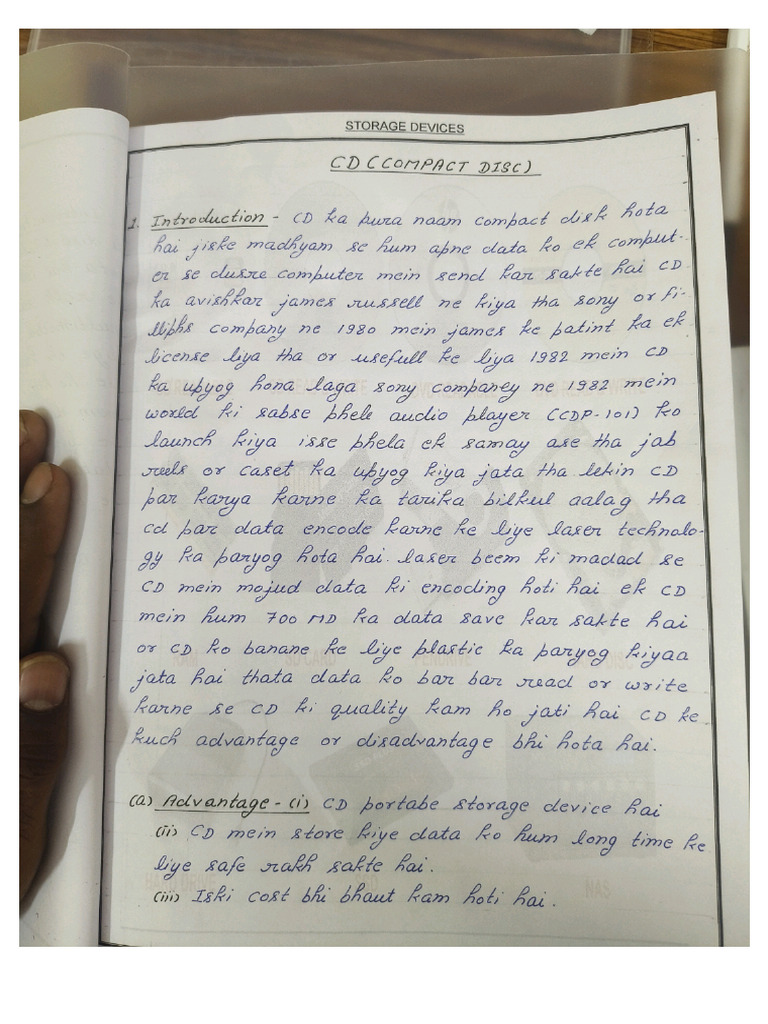 STORAGE DEVICES
CD (COMPACT DISC)
1. Introduction - CD ka pura naam compact disk hota
hai jiske madhyam se hum apne data ko ek comput-
er se dusre computer mein send kar sakte hai CD
ka avishkar james russell ne kiya tha sony or fi-
lliphs company ne 1980 mein james ke patint ka ek
license liya tha or usefull ke liya 1982 mein CD
ka upyog hona laga sony companey ne 1982 mein
world ki sabse phele audio player (CDP-101) ko
launch kiya isse phela ek samay ase tha jab
reels or caset ka upyog kiya jata tha lekin CD
par karya karne ka tarika bilkul aalag tha
cd par data encode karne ke liye laser technolo-
gy ka paryog hota hai. laser beem ki madad se
CD mein mojud data ki encoding hoti hai ek CD
mein hum 700 MD ka data save kar sakte hai
or CD ko banane ke liye plastic ka paryog kiyaa
jata hai thata data ko bar bar read or write
karne se CD ki quality kam ho jati hai CD ke
kuch advantage or disadvantage bhi hota hai.
(a) Advantage - (i) CD portabe storage device hai
(ii) CD mein store kiye data ko hum long time ke
liye safe rakh sakte hai.
(iii) Iski cost bhi bhaut kam hoti hai.
NAS